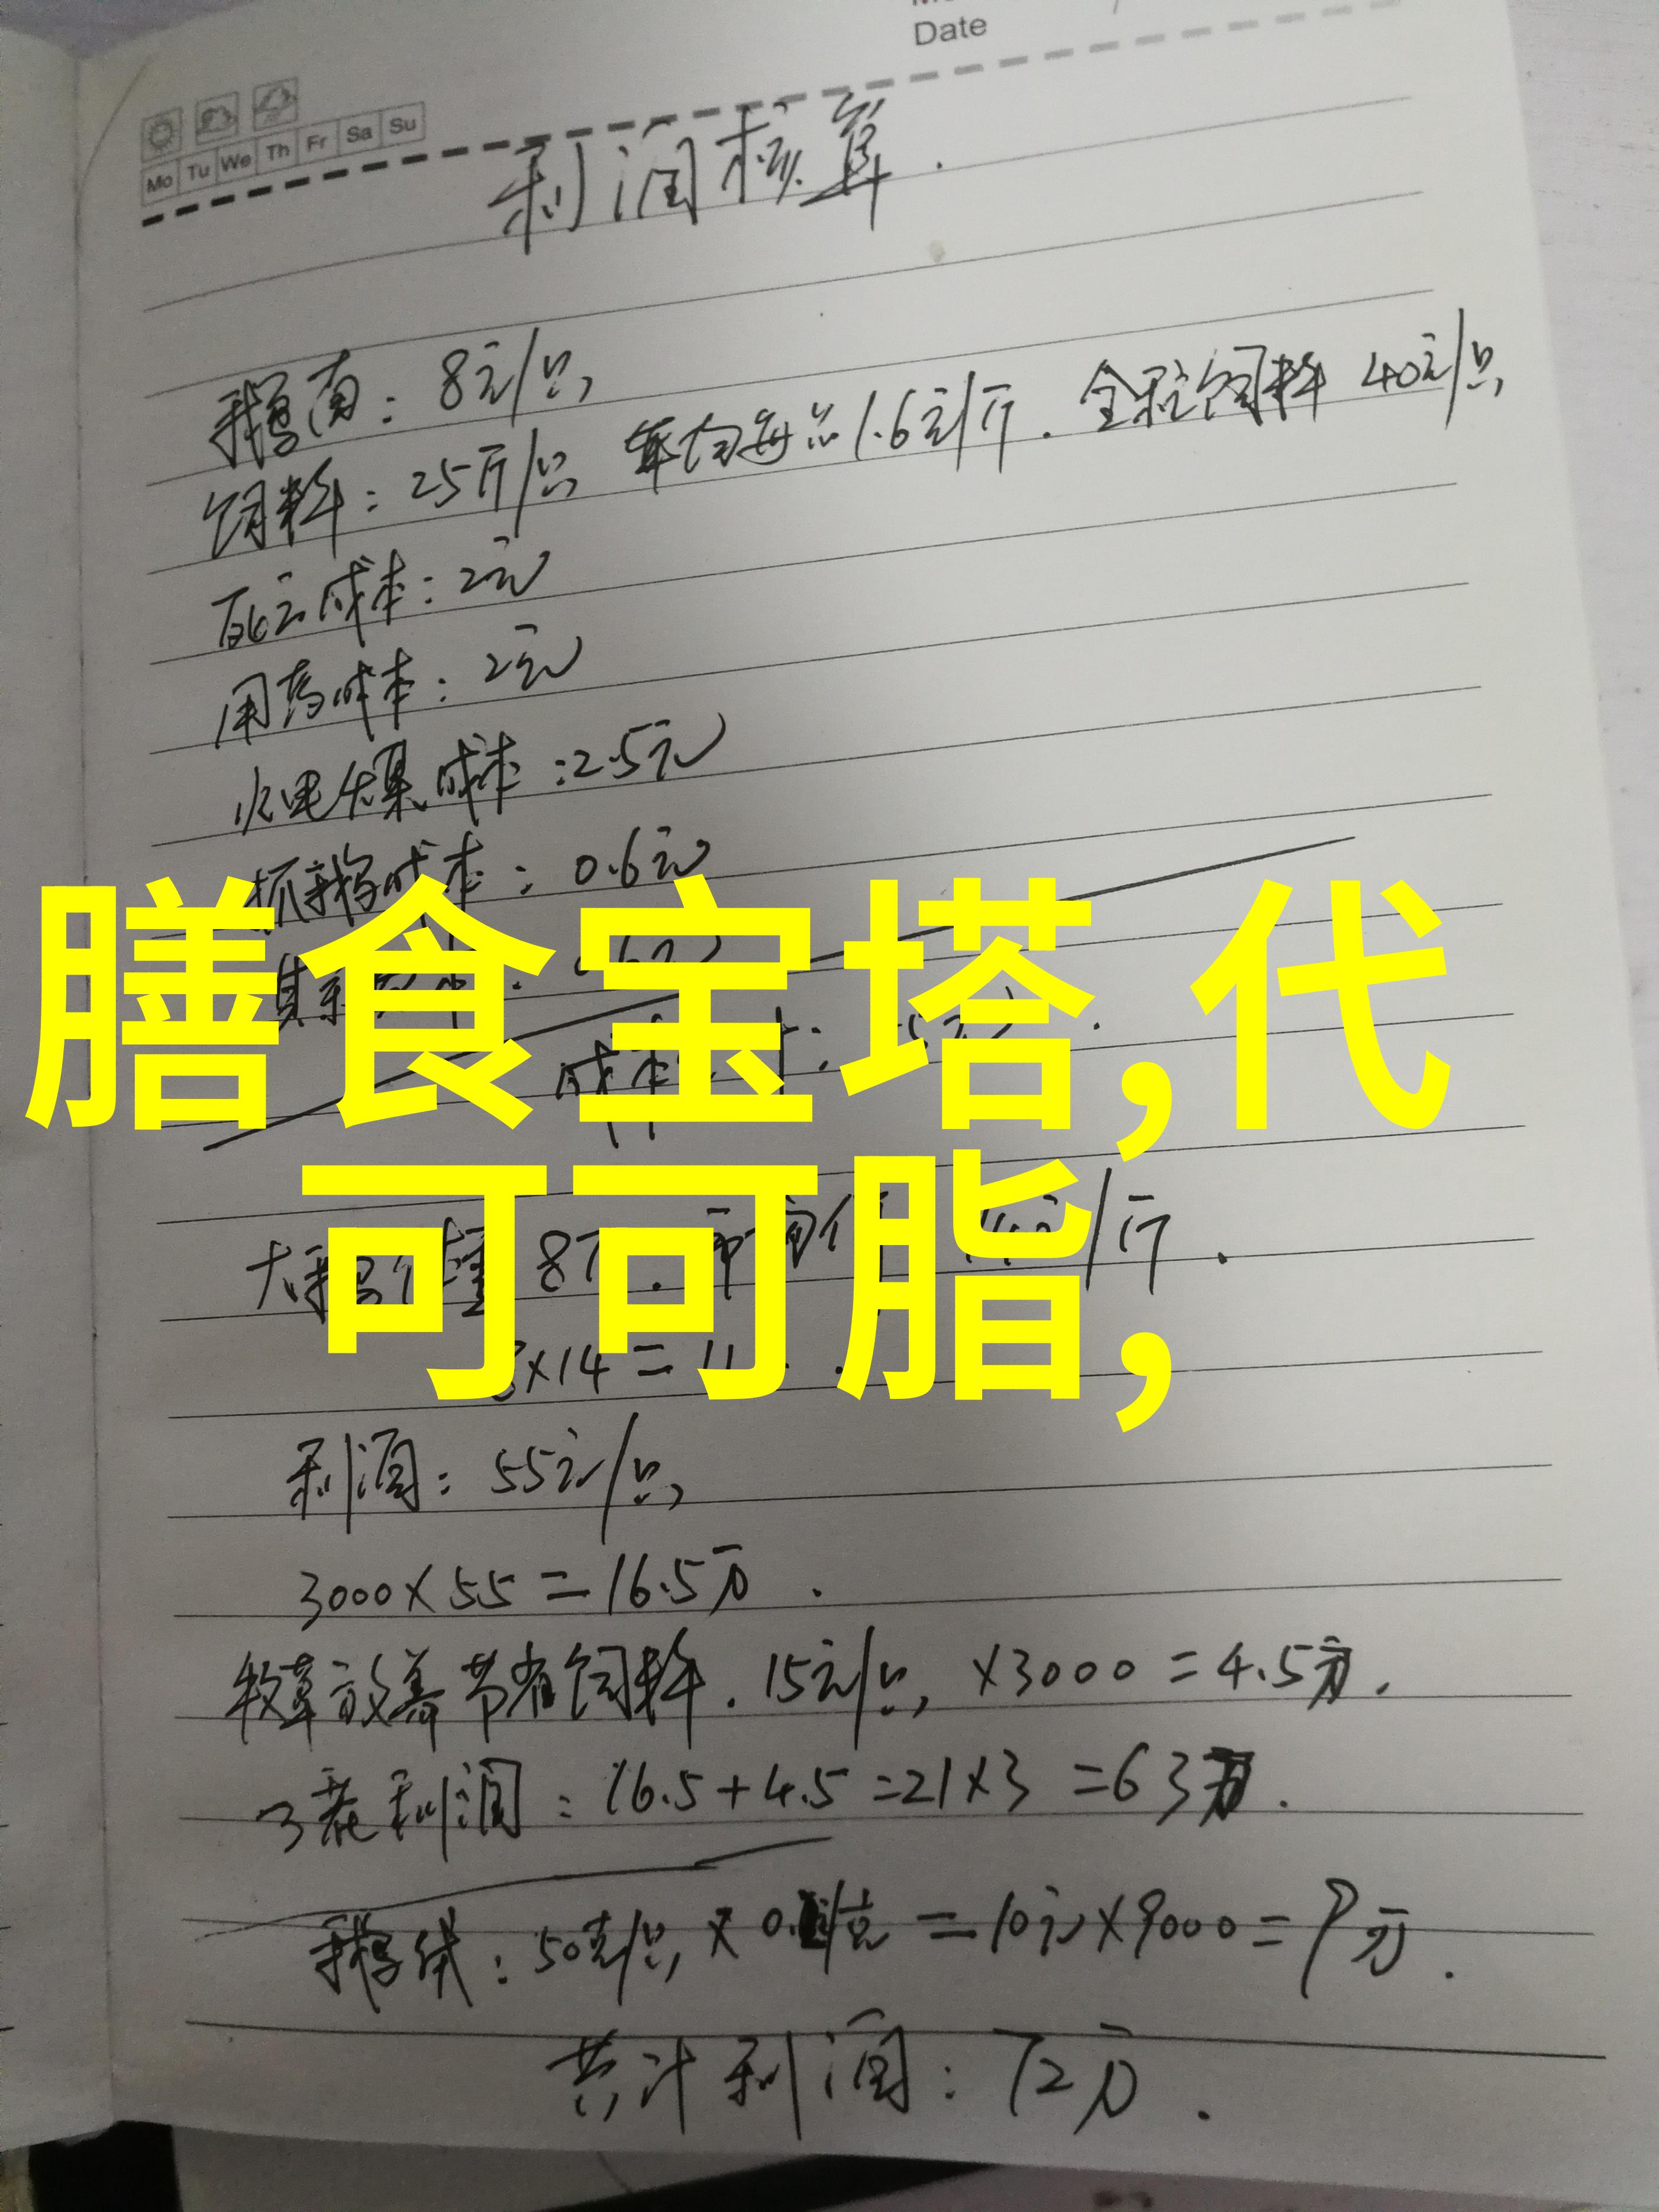 Date
Mo Tu We Th Fr Sa Su
利润核算.
鹅苗: 8元/只,
饲料: 25斤/只, 平均每斤1.6元/斤. 全程饲料 40元/只,
死亡成本: 2元
用药成本: 2元
水电煤成本: 2.5元
抓鹅成本: 0.6元
膳食宝塔,代
可可脂,
大鹅体重 8斤
8×14=11
利润: 55元/只,
3000×55=16.5万.
牧草放养节省饲料. 15元/只, ×3000=4.5万.
3茬利润: 16.5+4.5=21×3=63万.
鹅绒: 50克/只, × =10元×9000=9万.
共计利润: 72万.